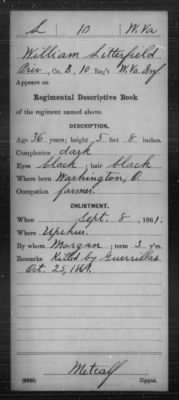 L 10 W.Va
William Litterfield
Priv, Co. B, 10 Reg't W. Va. Inf
Appears on
Regimental Descriptive Book
of the regiment named above.
DESCRIPTION.
Age 36 years; height 5 feet 8 inches.
Complexion dark
Eyes black; hair black
Where born Washington, O.
Occupation farmer
ENLISTMENT.
When Sept. 8, 1861.
Where Upshur
By whom Morgan; term 3 y'rs.
Remarks Killed by Guerrillas
Oct. 25, 1864.
Metcalf
Copyist.